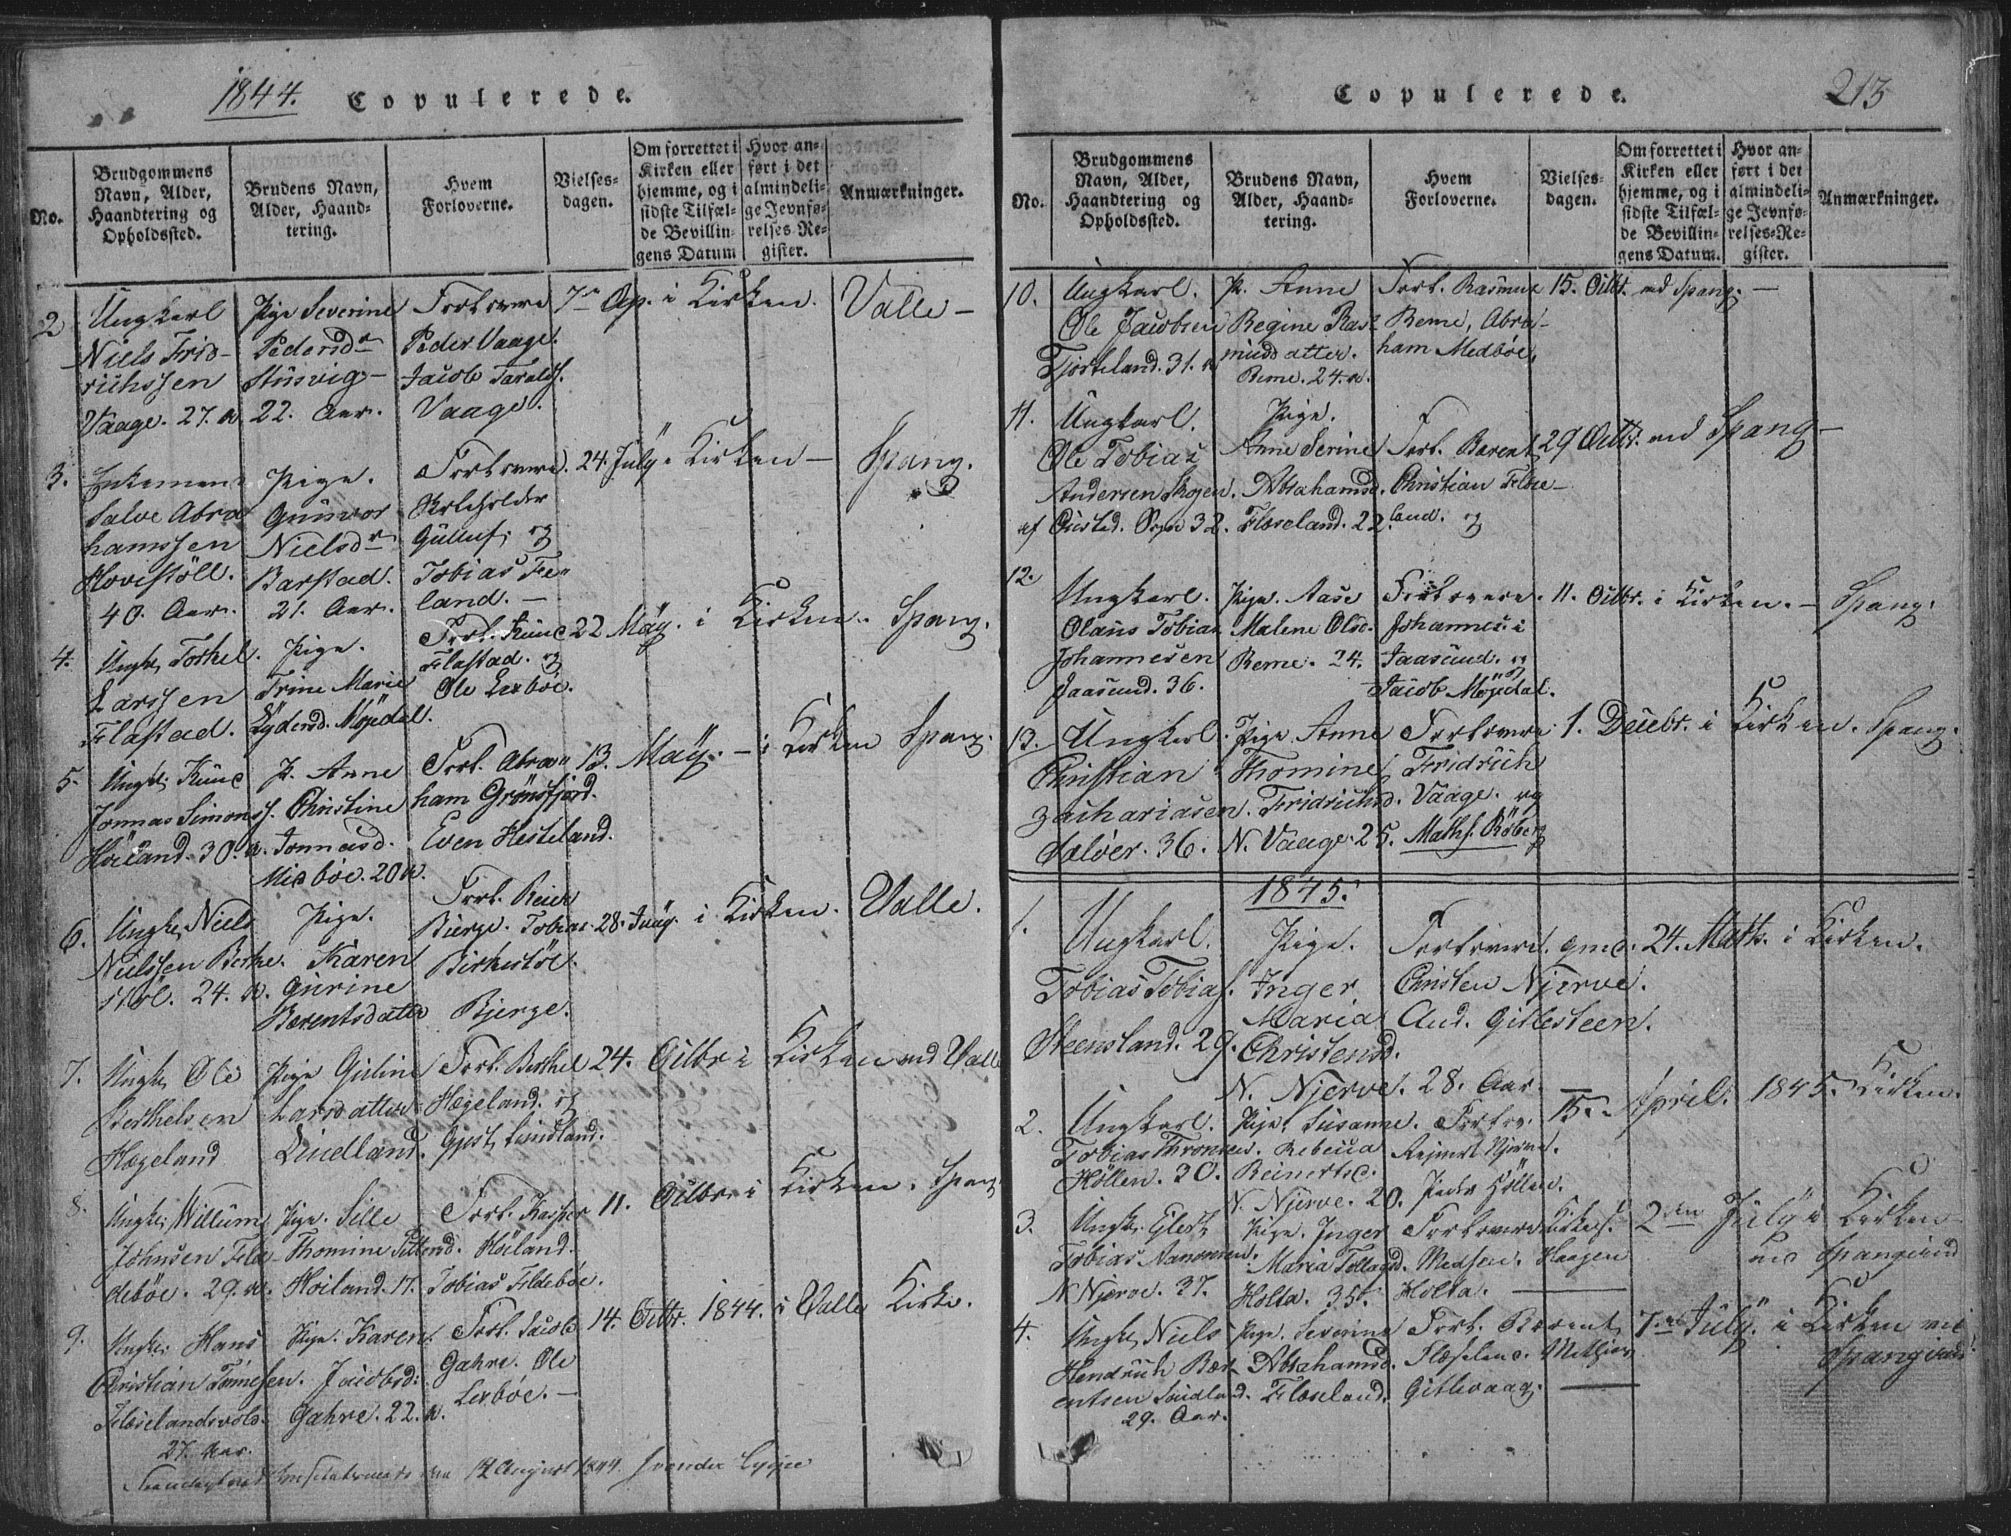 1844. Copulerede.
No.
Brudgommens
Navn, Alder,
Haandtering og
Opholdssted.
Brudens Navn,
Alder, Haand-
tering.
Hvem
Forloverne.
Vielses-
dagen.
Om forrettet i
Kirken eller
hjemme, og i
sidste Tilfæl-
de Bevillin-
gens Datum
Hvor an-
ført i det
almindeli-
ge Jevnfø-
relses-Re-
gister.
Anmærkninger.
2
Ungkarl
Niels Frid-
richssen
Vaage. 27. a.
Pige Severine
Pedersd
22. Aar.
Forlovere
Peder Vaage.
Jacob Taralds.
Vaage.
7de Ap. i Kirken.
Valle -
3.
Enkemand
Salve Abra
hamssen
Hovestöll.
40. Aar.
Pige.
Gunvor
Nielsd
Barstad.
21. Aar.
Forlovere.
Kirkeholder
Gulluf. og
Tobias Fe-
land. -
24. July i Kirken -
Spang.
4.
Ungk. Torkel
Larssen
Flastad.
Pige.
Trine Marie
Lydersd. Møgedal.
Forl. Knud
Flastad. og
Ole Lexbøe.
22 May. i Kirken.
Spang.
5.
Ungk. Knud
Jonnas Simons.
Höiland. 30. a.
P. Anne
Christine
Jonnasd.
Midbøe. 20 a.
Forl. Abra-
ham Grønsfjord.
Even Hesteland.
13. May. - i Kirken
Spang.
6.
Ungk. Niels
Nielssen
24. a.
Pige.
Karen
Gurine
Bærentsdatter
Forl. Reier
Bierge. Tobias
Birkestøl.
Bjerge.
28. i Kirken.
Valle.
7.
Ungk. Ole
Berthelsen
Hægeland
Pige Guline
Larsdatter
Lindland.
Forl. Berthel
Hægeland. og
Gjest Lindland.
24. Octbr i Kirken ved Valle
8.
Ungk. Willum
Johnsen Flde-
debøe. 29. a.
Pige. Sille
Thomine
Hoiland. 17.
Forl. Kasper
Höiland.
Tobias Fldebøe.
11. Octbr. i Kirken. Spang
9.
Ungk. Hans
Christian Tönnesen.
Flæselandsvold.
27. Aar.
Pige. Karen
Jacobsd.
Gahre. 22. a.
Forl. Jacob
Gahre. Ole
Lexbøe. -
14. Octbr. 1844. i Valle Kirke.
12 August 1844.
Copulerede. 213
No.
Brudgommens
Navn, Alder,
Haandtering og
Opholdssted.
Brudens Navn,
Alder, Haand-
tering.
Hvem
Forloverne.
Vielses-
dagen.
Om forrettet i
Kirken eller
hjemme, og i
sidste Tilfæl-
de Bevillin-
gens Datum.
Hvor an-
ført i det
almindeli-
ge Jevnfø-
relses-Re-
gister.
Anmærkninger.
10.
Ungkarl.
Ole Jacobsen
Tjorteland. 31. a
P. Anne
Regine Ras-
musdatter.
Reme. 24. a.
Forl. Rasmus
Reme, Abra-
ham Medbøe.
15. Octbr. ved Spang. -
11.
Ungkarl.
Ole Tobias
Andersen Skojen.
af Oiested. Sogn 32.
Pige.
Anne Serine
Abrahamsd.
Flæseland. 22.
Forl. Barent
Christian Flæse-
land. og
29 Octbr. ved Spang -
12.
Ungkarl.
Olaus Tobias
Johannesen
Jaasund. 36.
Pige. Aase
Malene Olsd.
Reme. 24.
Forlovere.
Johannes i
Jaasund. og
Jacob Møgedal.
11. Octbr. i Kirken. -
Spang.
13.
Ungkarl.
Christian
Zachariasen
Salöer. 36.
Pige Anne
Thomine
Fridrichsd.
N. Vaage. 25.
Forlovere
Fridrich
Vaage. og
Maths. Röberg
1. Decbr. i Kirken. Spang.
1845.
1.
Ungkarl.
Tobias Tobias.
Steensland. 29.
Pige.
Inger
Maria
Christensd.
N. Njerve. 28. Aar.
Forlovere. gmd.
Christen Njerve.
And. Gitlesteen.
24. Marts. i Kirken.
2.
Ungkarl.
Tobias Thronsen.
Höllen. 30.
Pige. Susanne.
Rebecca
Reinertsd.
N. Njerve. 20.
Forlov.
Rejnert Njerve.
Peder Höllen.
15de April. 1845. Kirken.
3.
Ungk. Gjest
Tobias Aanonsen.
N Njerve. 37.
Pige. Inger
Maria Tollagd.
Holta. 35.
Forlovere Kirkes.
Madsen. Haagen
Holta.
2den July i Kirken
ved Spangereid
4.
Ungk. Niels
Hendrich Bær-
entsen Lindland.
29. Aar.
Pige. Severine
Abrahamsd.
Flæseland.
Forl. Bærent
Flæseland.
Gitlevaag.
7de July. i Kirken ved
Spangereid